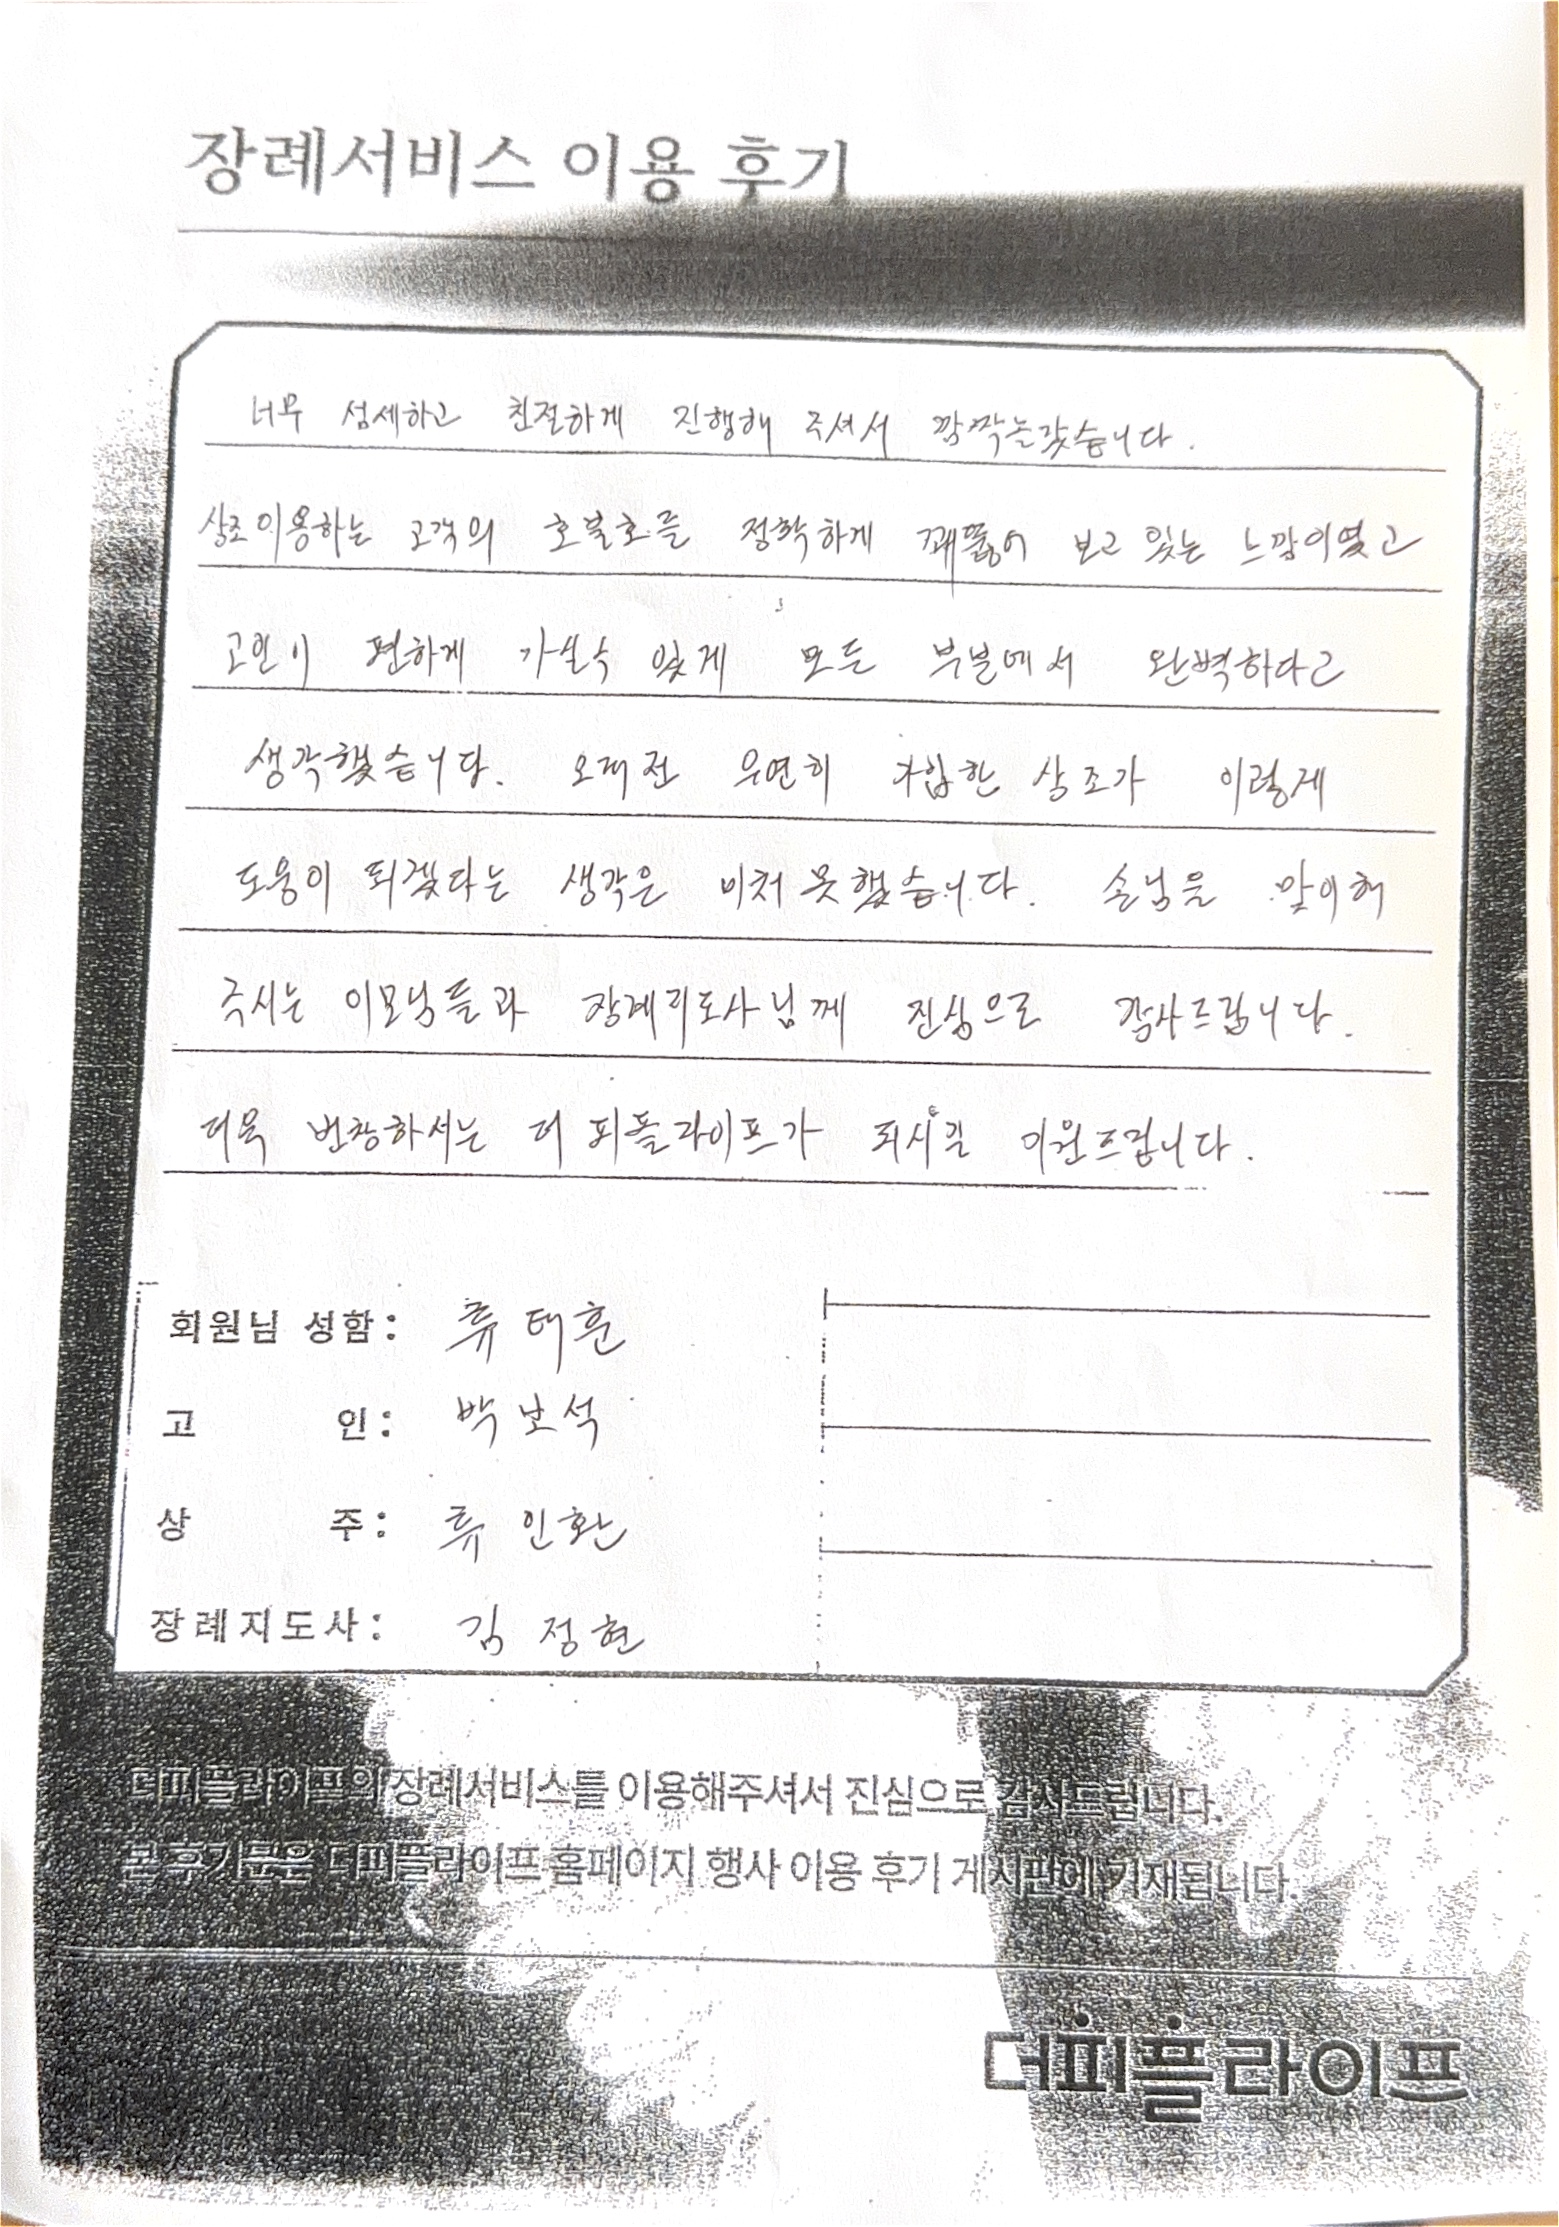 장례서비스 이용 후기
너무 섬세하고 친절하게 진행해 주셔서 깜짝놀랐습니다.
상조이용하는 고객의 호불호를 정확하게 꿰뚫어 보고 있는 느낌이였고
고인이 편하게 가실수 있게 모든 부분에서 완벽하다고
생각했습니다. 오래전 우연히 가입한 상조가 이렇게
도움이 되겠다는 생각은 미처 못했습니다. 손님을 맞이해
주시는 이모님들과 장례지도사님께 진심으로 감사드립니다.
더욱 번창하시는 더 피플라이프가 되시길 기원드립니다.
회원님 성함: 류태훈
고 인: 박보석
상 주: 류인환
장례지도사: 김정현
더피플라이프의 장례서비스를 이용해주셔서 진심으로 감사드립니다.
본 후기분은 더피플라이프 홈페이지 행사 이용 후기 게시판에 기재됩니다.
더피플라이프